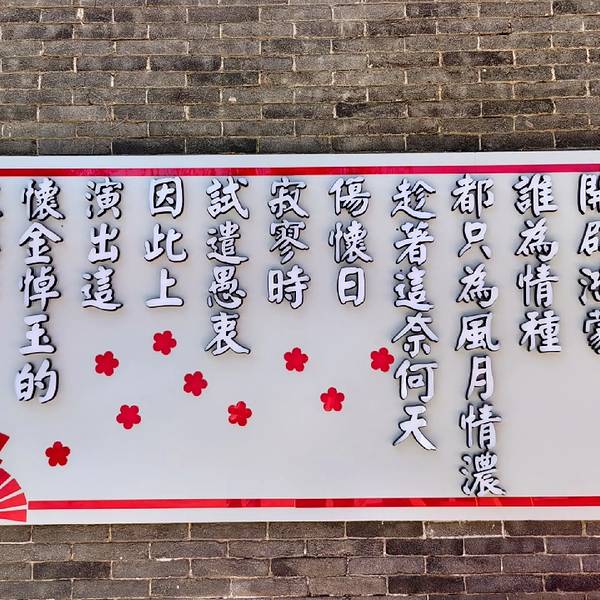 開闢鴻蒙
誰為情種
都只為風月情濃
趁著這奈何天
傷懷日
寂寥時
試遣愚衷
因此上
演出這
懷金悼玉的